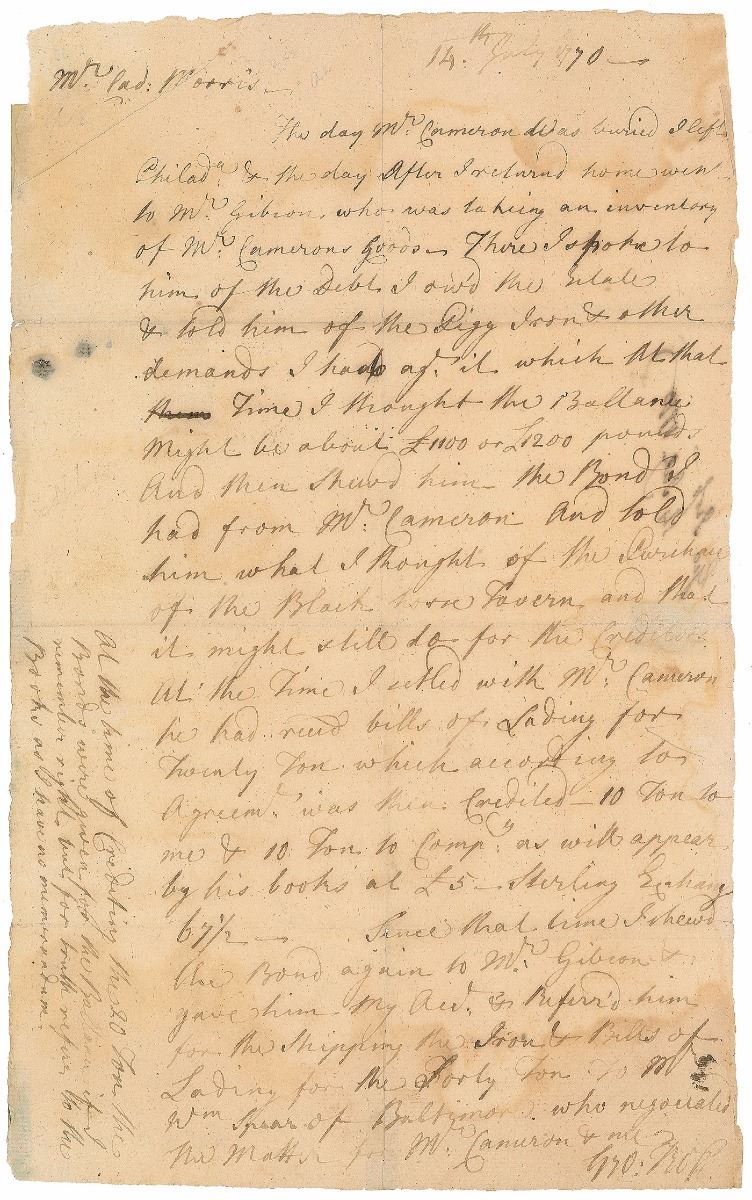 14.th July 1770 —
Mr. Cad: Morris —
The day Mr. Cameron was buried I left
Philada. & the day After I return'd home went
to Mr. Gibson, who was taking an inventory
of Mr. Camerons Goods — There I spoke to
him of the Debt I ow'd the Estate
& told him of the Pigg Iron & other
demands I had agt. it which At that
Time I thought the Ballance
Might be about £1100 or £1200 pounds
And then Shew'd him the Bond I
had from Mr. Cameron And told
him what I thought of the Purchase
of the Black horse Tavern and that
it might still do for the Creditors
At the Time I setled with Mr. Cameron
he had recd bills of Lading for
Twenty Ton which according to
Agreemt. was then Credited — 10 Ton to
me & 10 Ton to Compy. as will appear
by his books at £5 — Sterling Exchang
67½ — Since that time I shewd
the Bond again to Mr. Gibson &
gave him My Acct. & Referr'd him
for the Shipping the Iron & Bills of
Lading for the Forty Ton To Mr
Wm Spear of Baltimore who negociated
the Matter for Mr. Cameron & me
Geo: Ross
At the time of Crediting the 20 Ton the
Bonds were given for the Ballance if I
remember right, but for truth refer to the
Books as I have no memorandum.